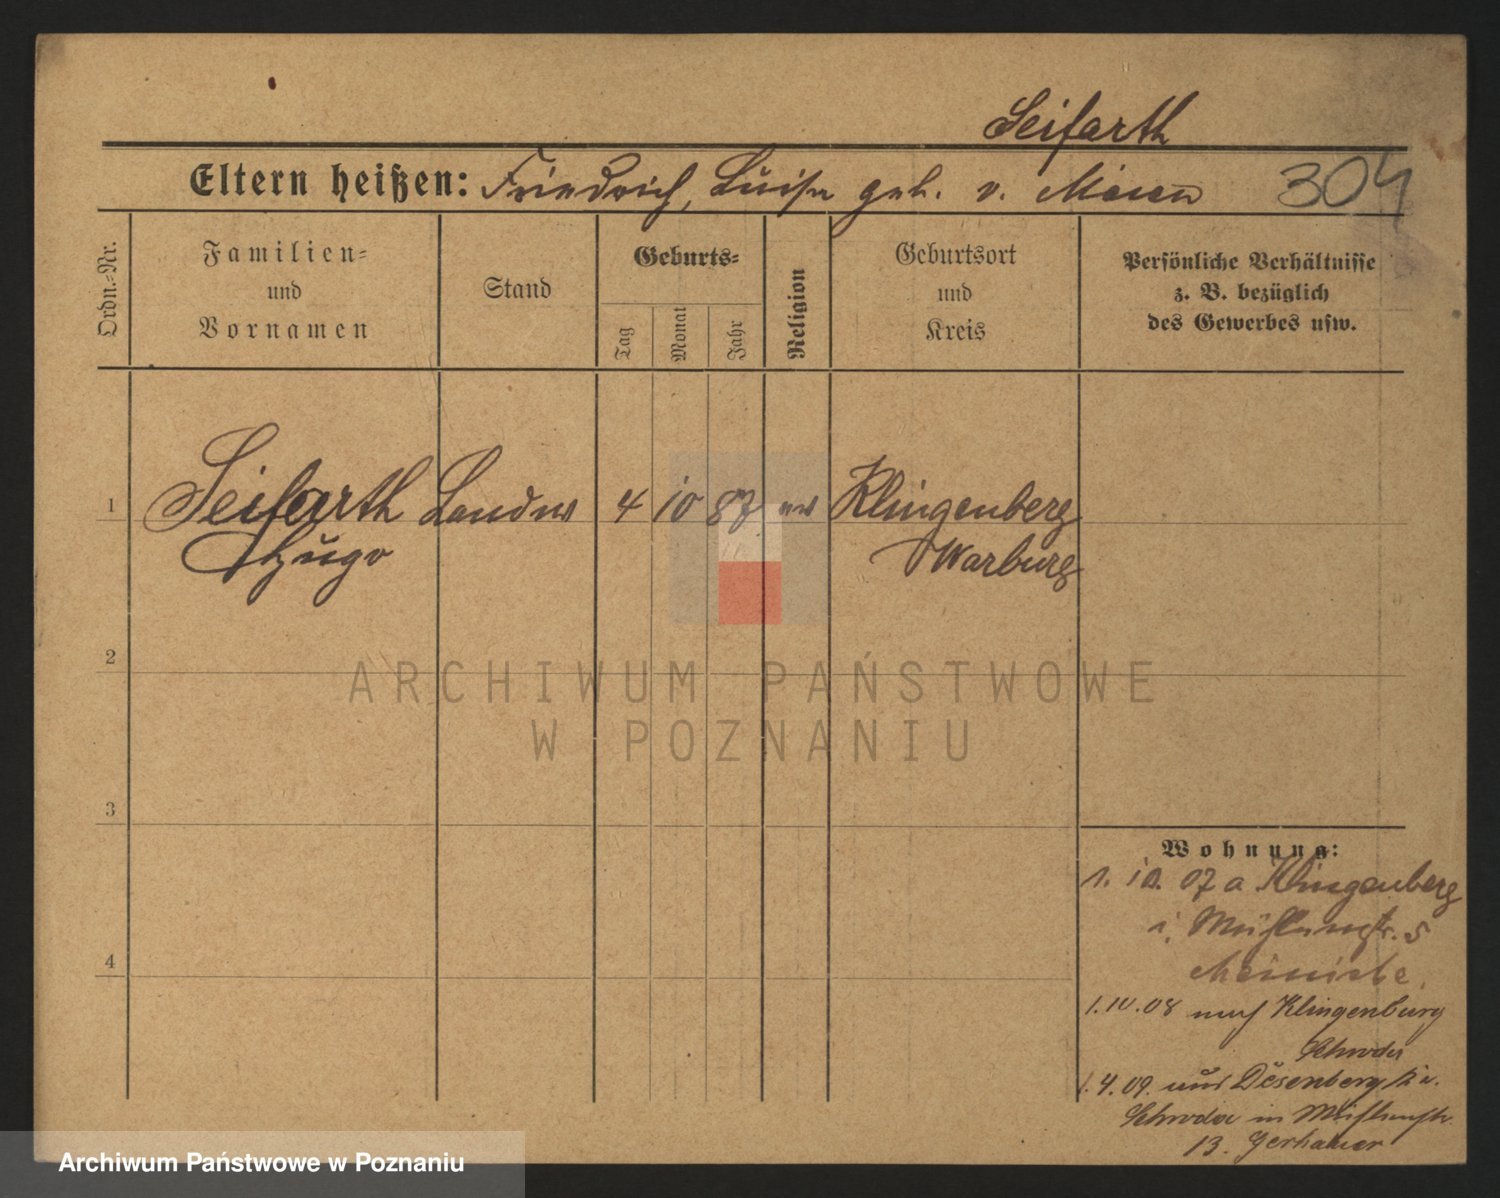 Seifarth
Eltern heißen: Friedrich, Luise geb. v.
304
Ordn.=Nr.
Familien=
und
Vornamen
Stand
Geburts=
Tag
Monat
Jahr
Religion
Geburtsort
und
Kreis
Persönliche Verhältnisse
z. B. bezüglich
des Gewerbes usw.
1
Seifarth Landw 4 10 87 ev Klingenberg
Hugo Warburg
2
ARCHIWUM PAŃSTWOWE
W POZNANIU
3
Wohnung:
1. 10. 07 a Klingenberg
i. Mühlenstr. 5
4
1.10.08 nach Klingenburg
Schroda
1.4.09. aus Desenberg
Schroda in Mühlenstr.
13.
Archiwum Państwowe w Poznaniu